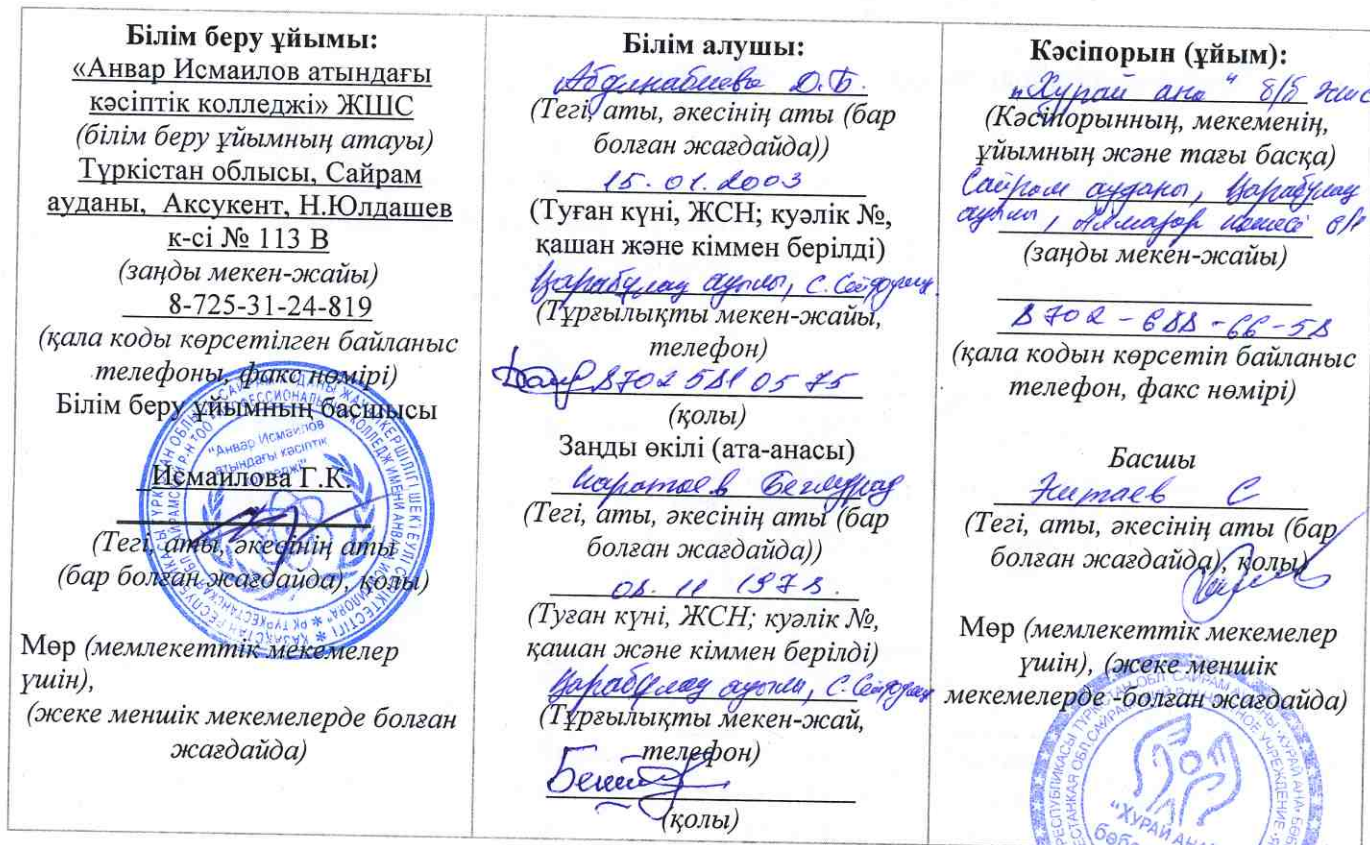 Білім беру ұйымы:
«Анвар Исмаилов атындағы
кәсіптік колледжі» ЖШС
(білім беру ұйымның атауы)
Түркістан облысы, Сайрам
ауданы, Аксукент, Н.Юлдашев
к-сі № 113 В
(заңды мекен-жайы)
8-725-31-24-819
(қала коды көрсетілген байланыс
телефоны, факс нөмірі)
Білім беру ұйымның басшысы
"Анвар Исмаилов
атындағы кәсіптік
колледжі"
Исмаилова Г.К.
(Тегі, аты, әкесінің аты
(бар болған жағдайда), қолы)
Мөр (мемлекеттік мекемелер
үшін),
(жеке меншік мекемелерде болған
жағдайда)
Білім алушы:
Абдинабиева Д.Б.
(Тегі, аты, әкесінің аты (бар
болған жағдайда))
15.01.2003
(Туған күні, ЖСН; куәлік №,
қашан және кіммен берілді)
Қарабұлақ ауылы, С.
(Тұрғылықты мекен-жайы,
телефон)
8702 581 05 75
(қолы)
Заңды өкілі (ата-анасы)
Бегмурад
(Тегі, аты, әкесінің аты (бар
болған жағдайда))
08. 11 1973.
(Туған күні, ЖСН; куәлік №,
қашан және кіммен берілді)
Қарабұлақ ауылы, С.
(Тұрғылықты мекен-жай,
телефон)
(қолы)
Кәсіпорын (ұйым):
„Хурай ана" б/б жшс
(Кәсіпорынның, мекеменің,
ұйымның және тағы басқа)
Сайрам ауданы, Қарабұлақ
ауылы, Алмазар көшесі
(заңды мекен-жайы)
8702-688-66-58
(қала кодын көрсетіп байланыс
телефон, факс нөмірі)
Басшы
Житаев С
(Тегі, аты, әкесінің аты (бар
болған жағдайда), қолы)
Мөр (мемлекеттік мекемелер
үшін), (жеке меншік
мекемелерде -болған жағдайда)
"ХУРАЙ АНА"